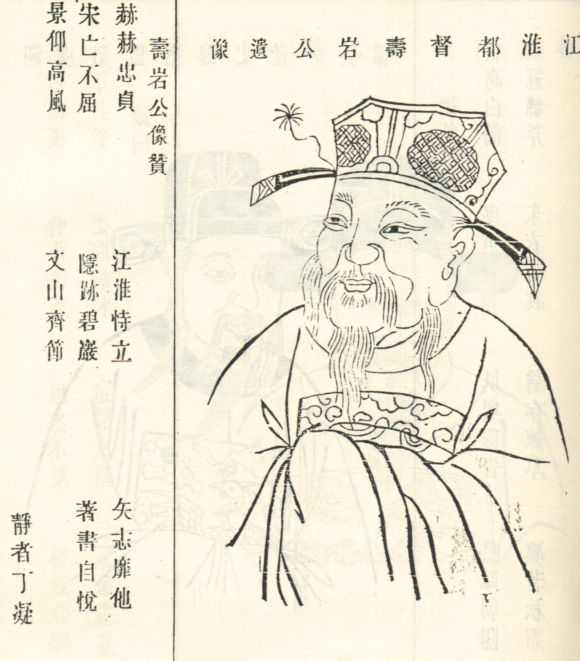 江淮都督壽岩公遺像
壽岩公像贊
赫赫忠貞 江淮恃立 矢志靡他
宋亡不屈 隱跡碧巖 著書自悅
景仰高風 文山齊節
靜者丁凝